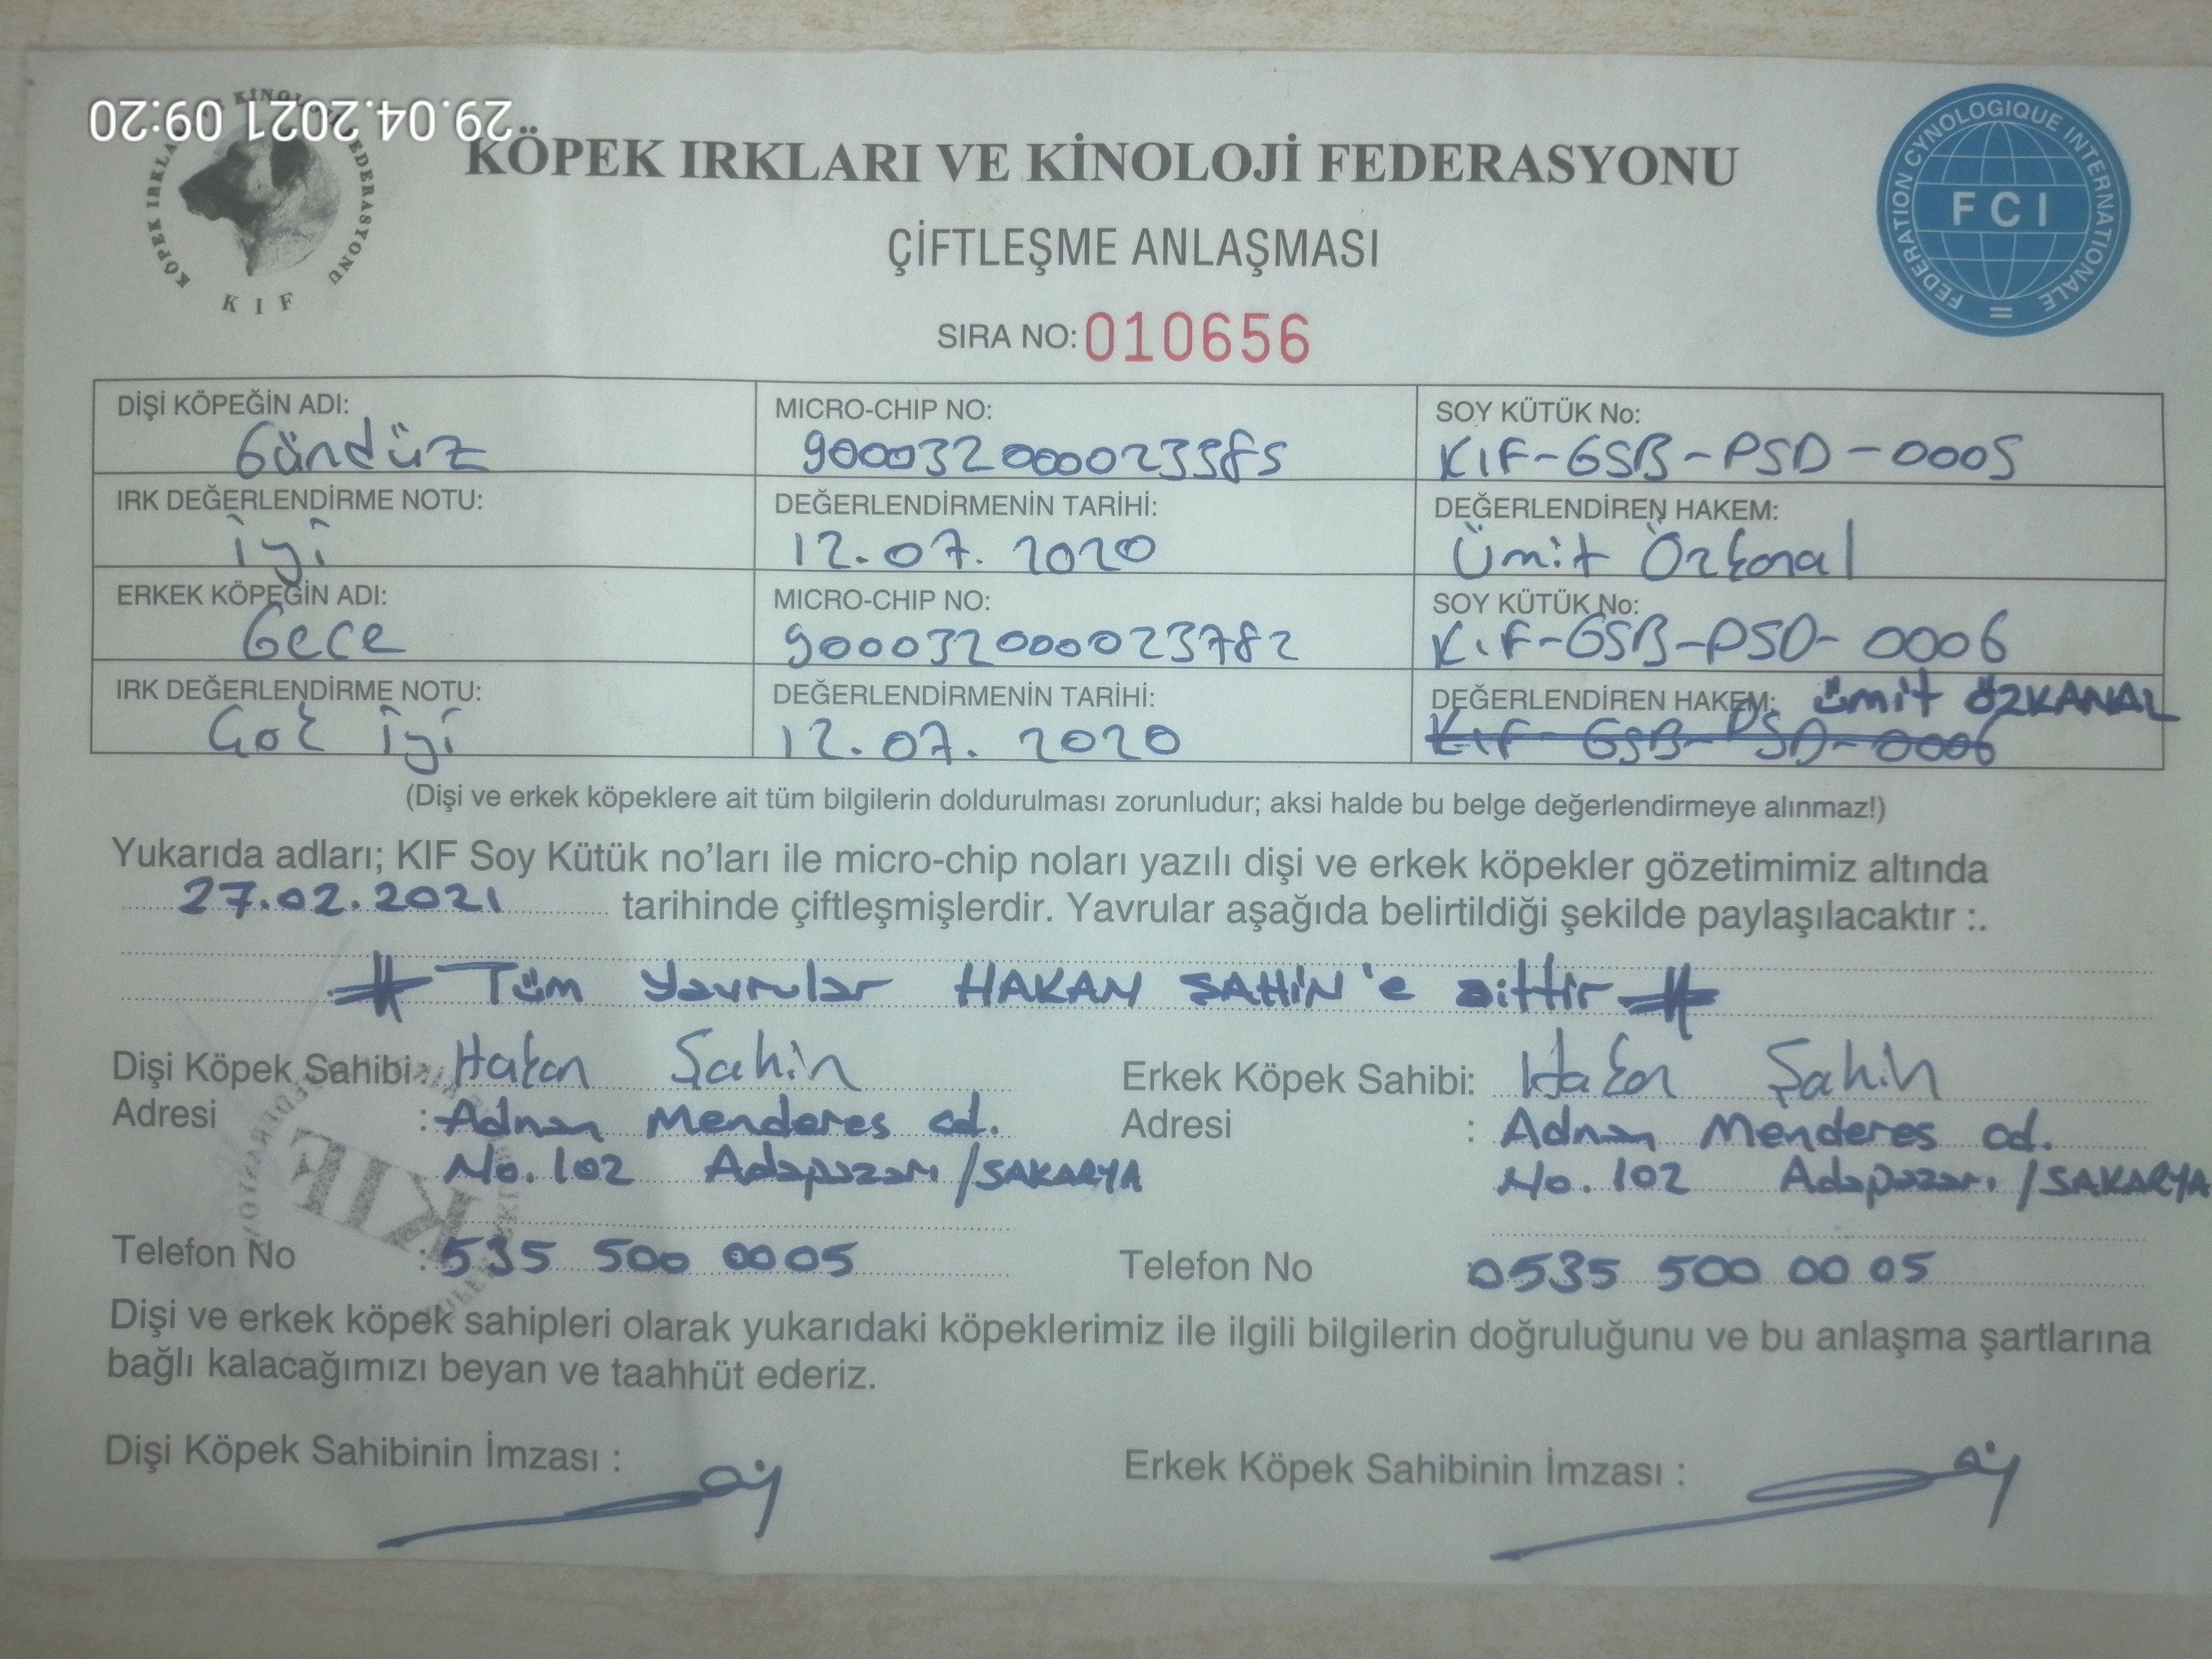 29.04.2021 09:20
KÖPEK IRKLARI VE KİNOLOJİ FEDERASYONU
KIF
KÖPEK IRKLARI VE KİNOLOJİ FEDERASYONU
FEDERATION CYNOLOGIQUE INTERNATIONALE
FCI
ÇİFTLEŞME ANLAŞMASI
SIRA NO: 010656
DİŞİ KÖPEĞİN ADI: MICRO-CHIP NO: SOY KÜTÜK No:
Gündüz 900032000023585 KIF-GSB-PSD-0005
IRK DEĞERLENDİRME NOTU: DEĞERLENDİRMENİN TARİHİ: DEĞERLENDİREN HAKEM:
İyi 12.07.2020 Ümit Özkanal
ERKEK KÖPEĞİN ADI: MICRO-CHIP NO: SOY KÜTÜK No:
Gece 900032000023782 KIF-GSB-PSD-0006
IRK DEĞERLENDİRME NOTU: DEĞERLENDİRMENİN TARİHİ: DEĞERLENDİREN HAKEM: Ümit ÖZKANAL
Çok iyi 12.07.2020 KIF-GSB-PSD-0006
(Dişi ve erkek köpeklere ait tüm bilgilerin doldurulması zorunludur; aksi halde bu belge değerlendirmeye alınmaz!)
Yukarıda adları; KIF Soy Kütük no'ları ile micro-chip noları yazılı dişi ve erkek köpekler gözetimimiz altında
27.02.2021 tarihinde çiftleşmişlerdir. Yavrular aşağıda belirtildiği şekilde paylaşılacaktır :.
# Tüm Yavrular HAKAN ŞAHİN'e aittir #
Dişi Köpek Sahibi : Hakan Şahin Erkek Köpek Sahibi: Hakan Şahin
Adresi : Adnan Menderes cd. Adresi : Adnan Menderes cd.
No.102 Adapazarı/SAKARYA No.102 Adapazarı/SAKARYA
KIF
Telefon No : 535 500 0005 Telefon No 0535 500 00 05
Dişi ve erkek köpek sahipleri olarak yukarıdaki köpeklerimiz ile ilgili bilgilerin doğruluğunu ve bu anlaşma şartlarına
bağlı kalacağımızı beyan ve taahhüt ederiz.
Dişi Köpek Sahibinin İmzası : Erkek Köpek Sahibinin İmzası :